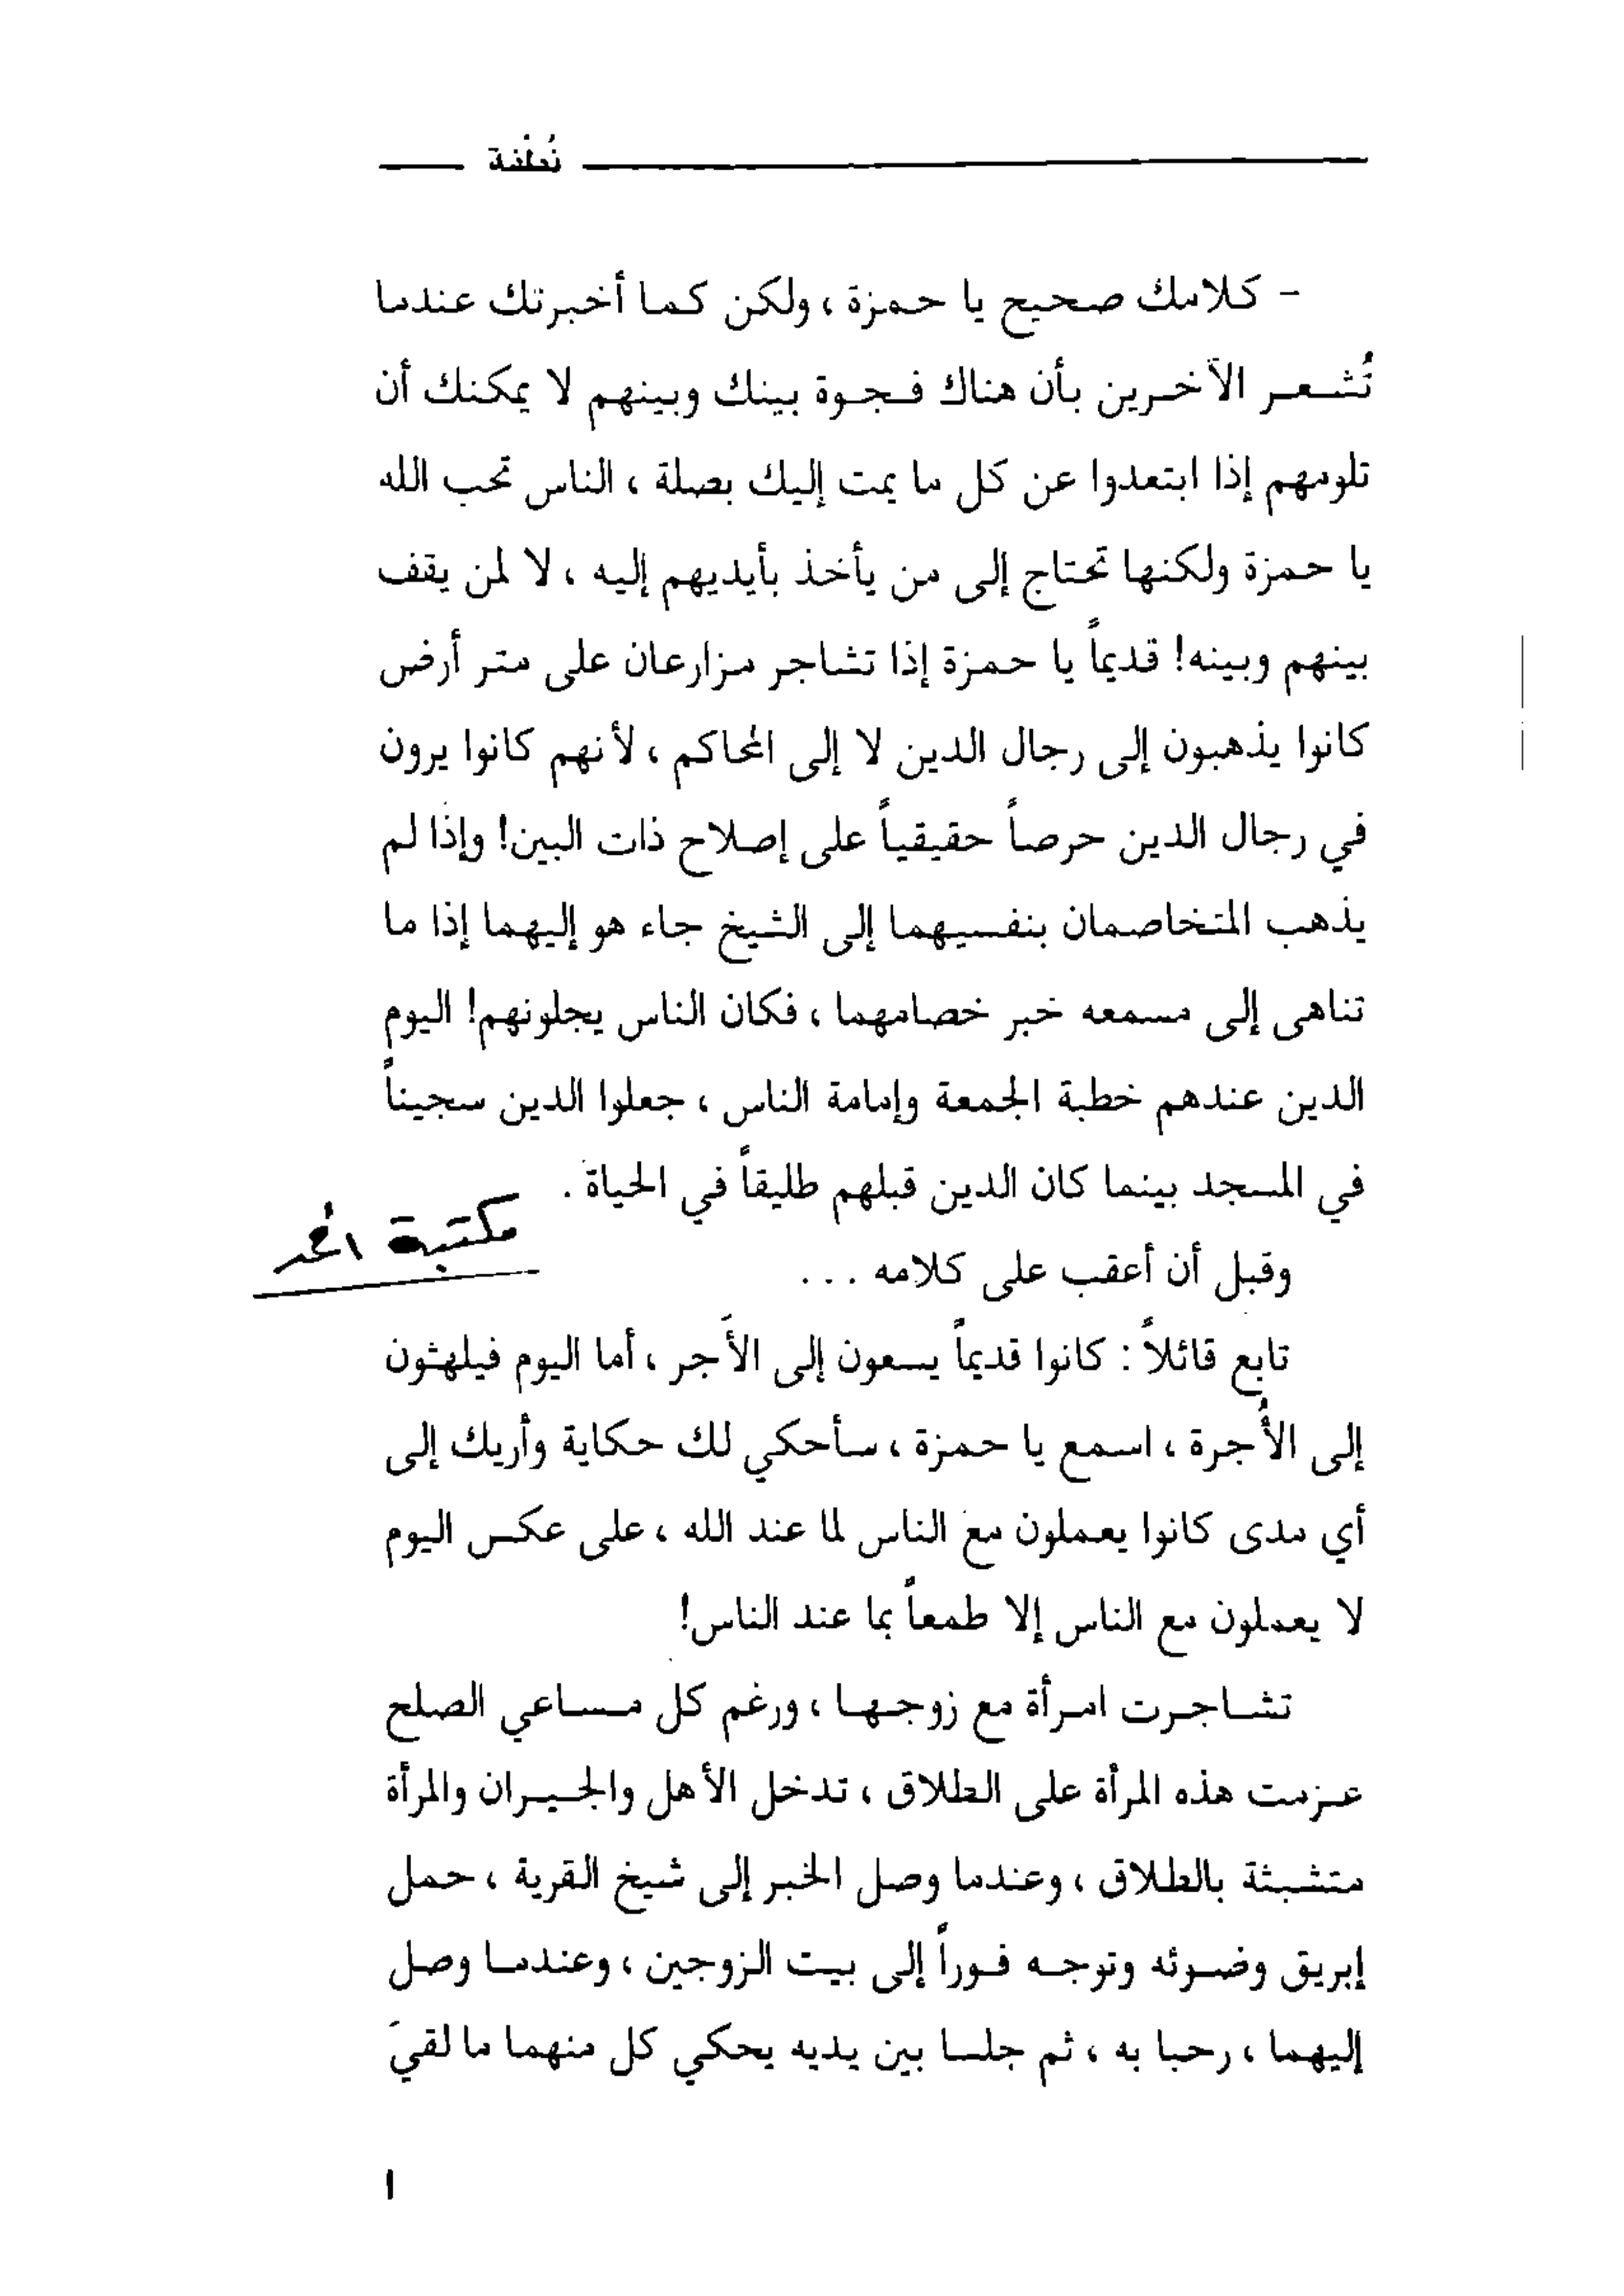 نُطْفة
- كلامك صحيح يا حمزة ، ولكن كما أخبرتك عندما
تُشعر الآخرين بأن هناك فجوة بينك وبينهم لا يمكنك أن
تلومهم إذا ابتعدوا عن كل ما يمت إليك بصلة ، الناس تحب الله
يا حمزة ولكنها تحتاج إلى من يأخذ بأيديهم إليه ، لا لمن يقف
بينهم وبينه! قديماً يا حمزة إذا تشاجر مزارعان على متر أرض
كانوا يذهبون إلى رجال الدين لا إلى المحاكم ، لأنهم كانوا يرون
في رجال الدين حرصاً حقيقياً على إصلاح ذات البين! وإذا لم
يذهب المتخاصمان بنفسيهما إلى الشيخ جاء هو إليهما إذا ما
تناهى إلى مسمعه خبر خصامهما ، فكان الناس يجلونهم! اليوم
الدين عندهم خطبة الجمعة وإمامة الناس ، جعلوا الدين سجيناً
في المسجد بينما كان الدين قبلهم طليقاً في الحياة .
مكتبة
وقبل أن أعقب على كلامه . . .
تابع قائلاً : كانوا قديماً يسعون إلى الأَجر ، أما اليوم فيلهثون
إلى الأُجرة ، اسمع يا حمزة ، سأحكي لك حكاية وأريك إلى
أي مدى كانوا يعملون مع الناس لما عند الله ، على عكس اليوم
لا يعملون مع الناس إلا طمعاً بما عند الناس!
تشاجرت امرأة مع زوجها ، ورغم كل مساعي الصلح
عزمت هذه المرأة على الطلاق ، تدخل الأهل والجيران والمرأة
متشبثة بالطلاق ، وعندما وصل الخبر إلى شيخ القرية ، حمل
إبريق وضوئه وتوجه فوراً إلى بيت الزوجين ، وعندما وصل
إليهما ، رحبا به ، ثم جلسا بين يديه يحكي كل منهما ما لقيَ